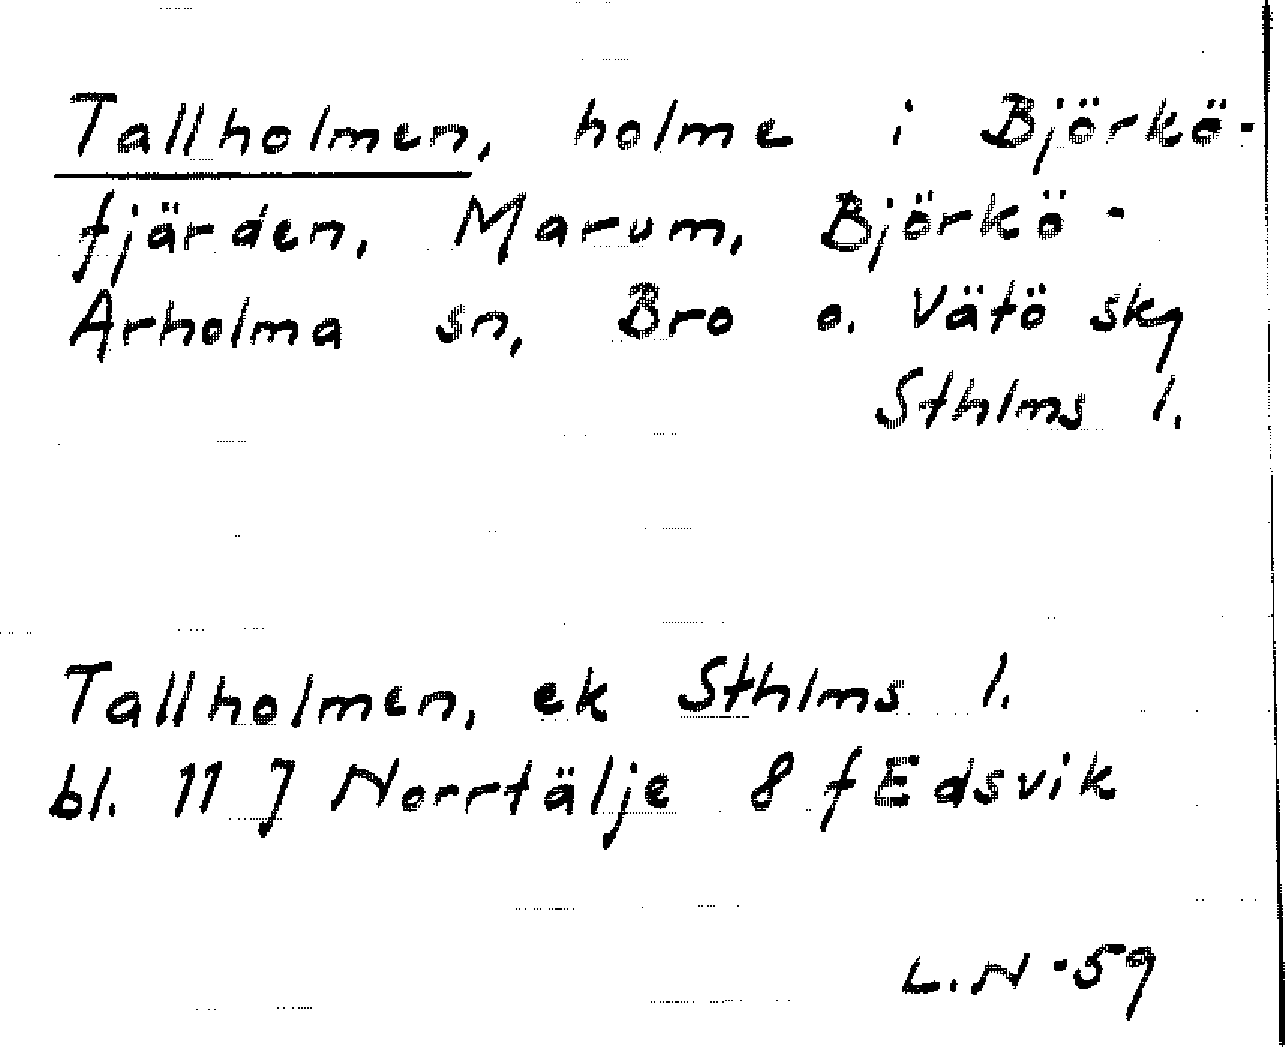 Tallholmen, holme i Björkö-
fjärden, Marum, Björkö-
Arholma sn, Bro o. Vätö skg
Sthlms l.
Tallholmen, ek Sthlms l.
bl. 11 J Norrtälje 8 f Edsvik
L.N -59